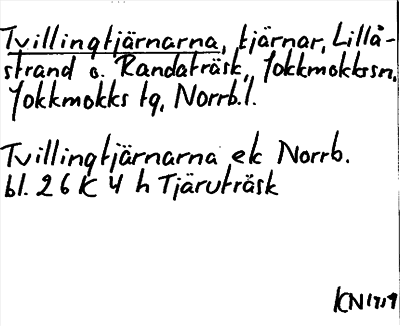 Tvillingtjärnarna, tjärnar, Lillå-
strand o. Randaträsk, Jokkmokkssn,
Jokkmokks tg, Norrb.l.
Tvillingtjärnarna ek Norrb.
bl. 26 K 4 h Tjäruträsk